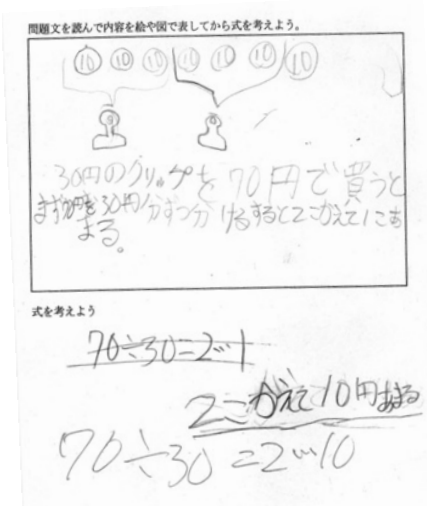 問題文を読んで内容を絵や図で表してから式を考えよう。
10 10 10 10 10 10 10
30円のクリップを70円で買うと
まず70円を30円分ずつ分けるすると2こかえて1こあ
まる。
式を考えよう
70÷30=2…1
2こかえて10円あまる
70÷30=2…10